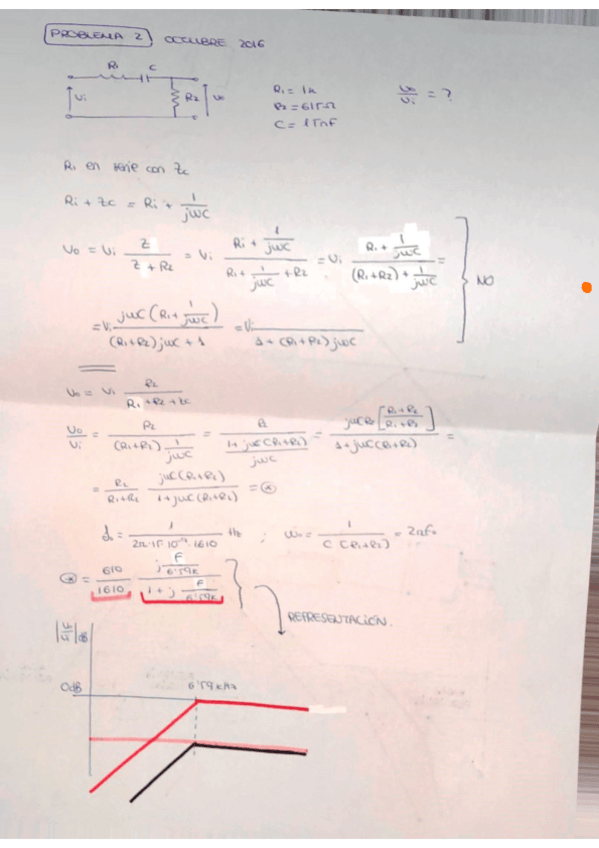 PROBLEMA 2 OCTUBRE 2016
R₁ C
Vi R₂ Vo
R₁ = 1k
R₂ = 615Ω
C = 15nF
Vo/Vi = ?
R₁ en serie con Zc
R₁ + Zc = R₁ + 1/jωC
Vo = Vi Z/(Z + R₂) = Vi (R₁ + 1/jωC)/(R₁ + 1/jωC + R₂) = Vi (R₁ + 1/jωC)/((R₁+R₂) + 1/jωC) =
NO
= Vi jωC (R₁ + 1/jωC)/((R₁+R₂)jωC + 1) = Vi /(1 + (R₁+R₂)jωC)
Vo = Vi R₂/(R₁ + R₂ + Zc)
Vo/Vi = R₂/((R₁+R₂) 1/jωC) = R₂/((1 + jωC(R₁+R₂))/jωC) = jωCR₂ [(R₁+R₂)/(R₁+R₂)]/(1 + jωC(R₁+R₂)) =
= R₂/(R₁+R₂) jωC(R₁+R₂)/(1 + jωC(R₁+R₂)) = ⊛
fo = 1/(2π·15·10⁻⁹·1610) Hz ; ωo = 1/(C(R₁+R₂)) = 2πfo
⊛ = 610/1610 (j F/6'59k)/(1 + j F/6'59k)
REPRESENTACIÓN.
|Vo/Vi| dB
0dB 6'59kHz